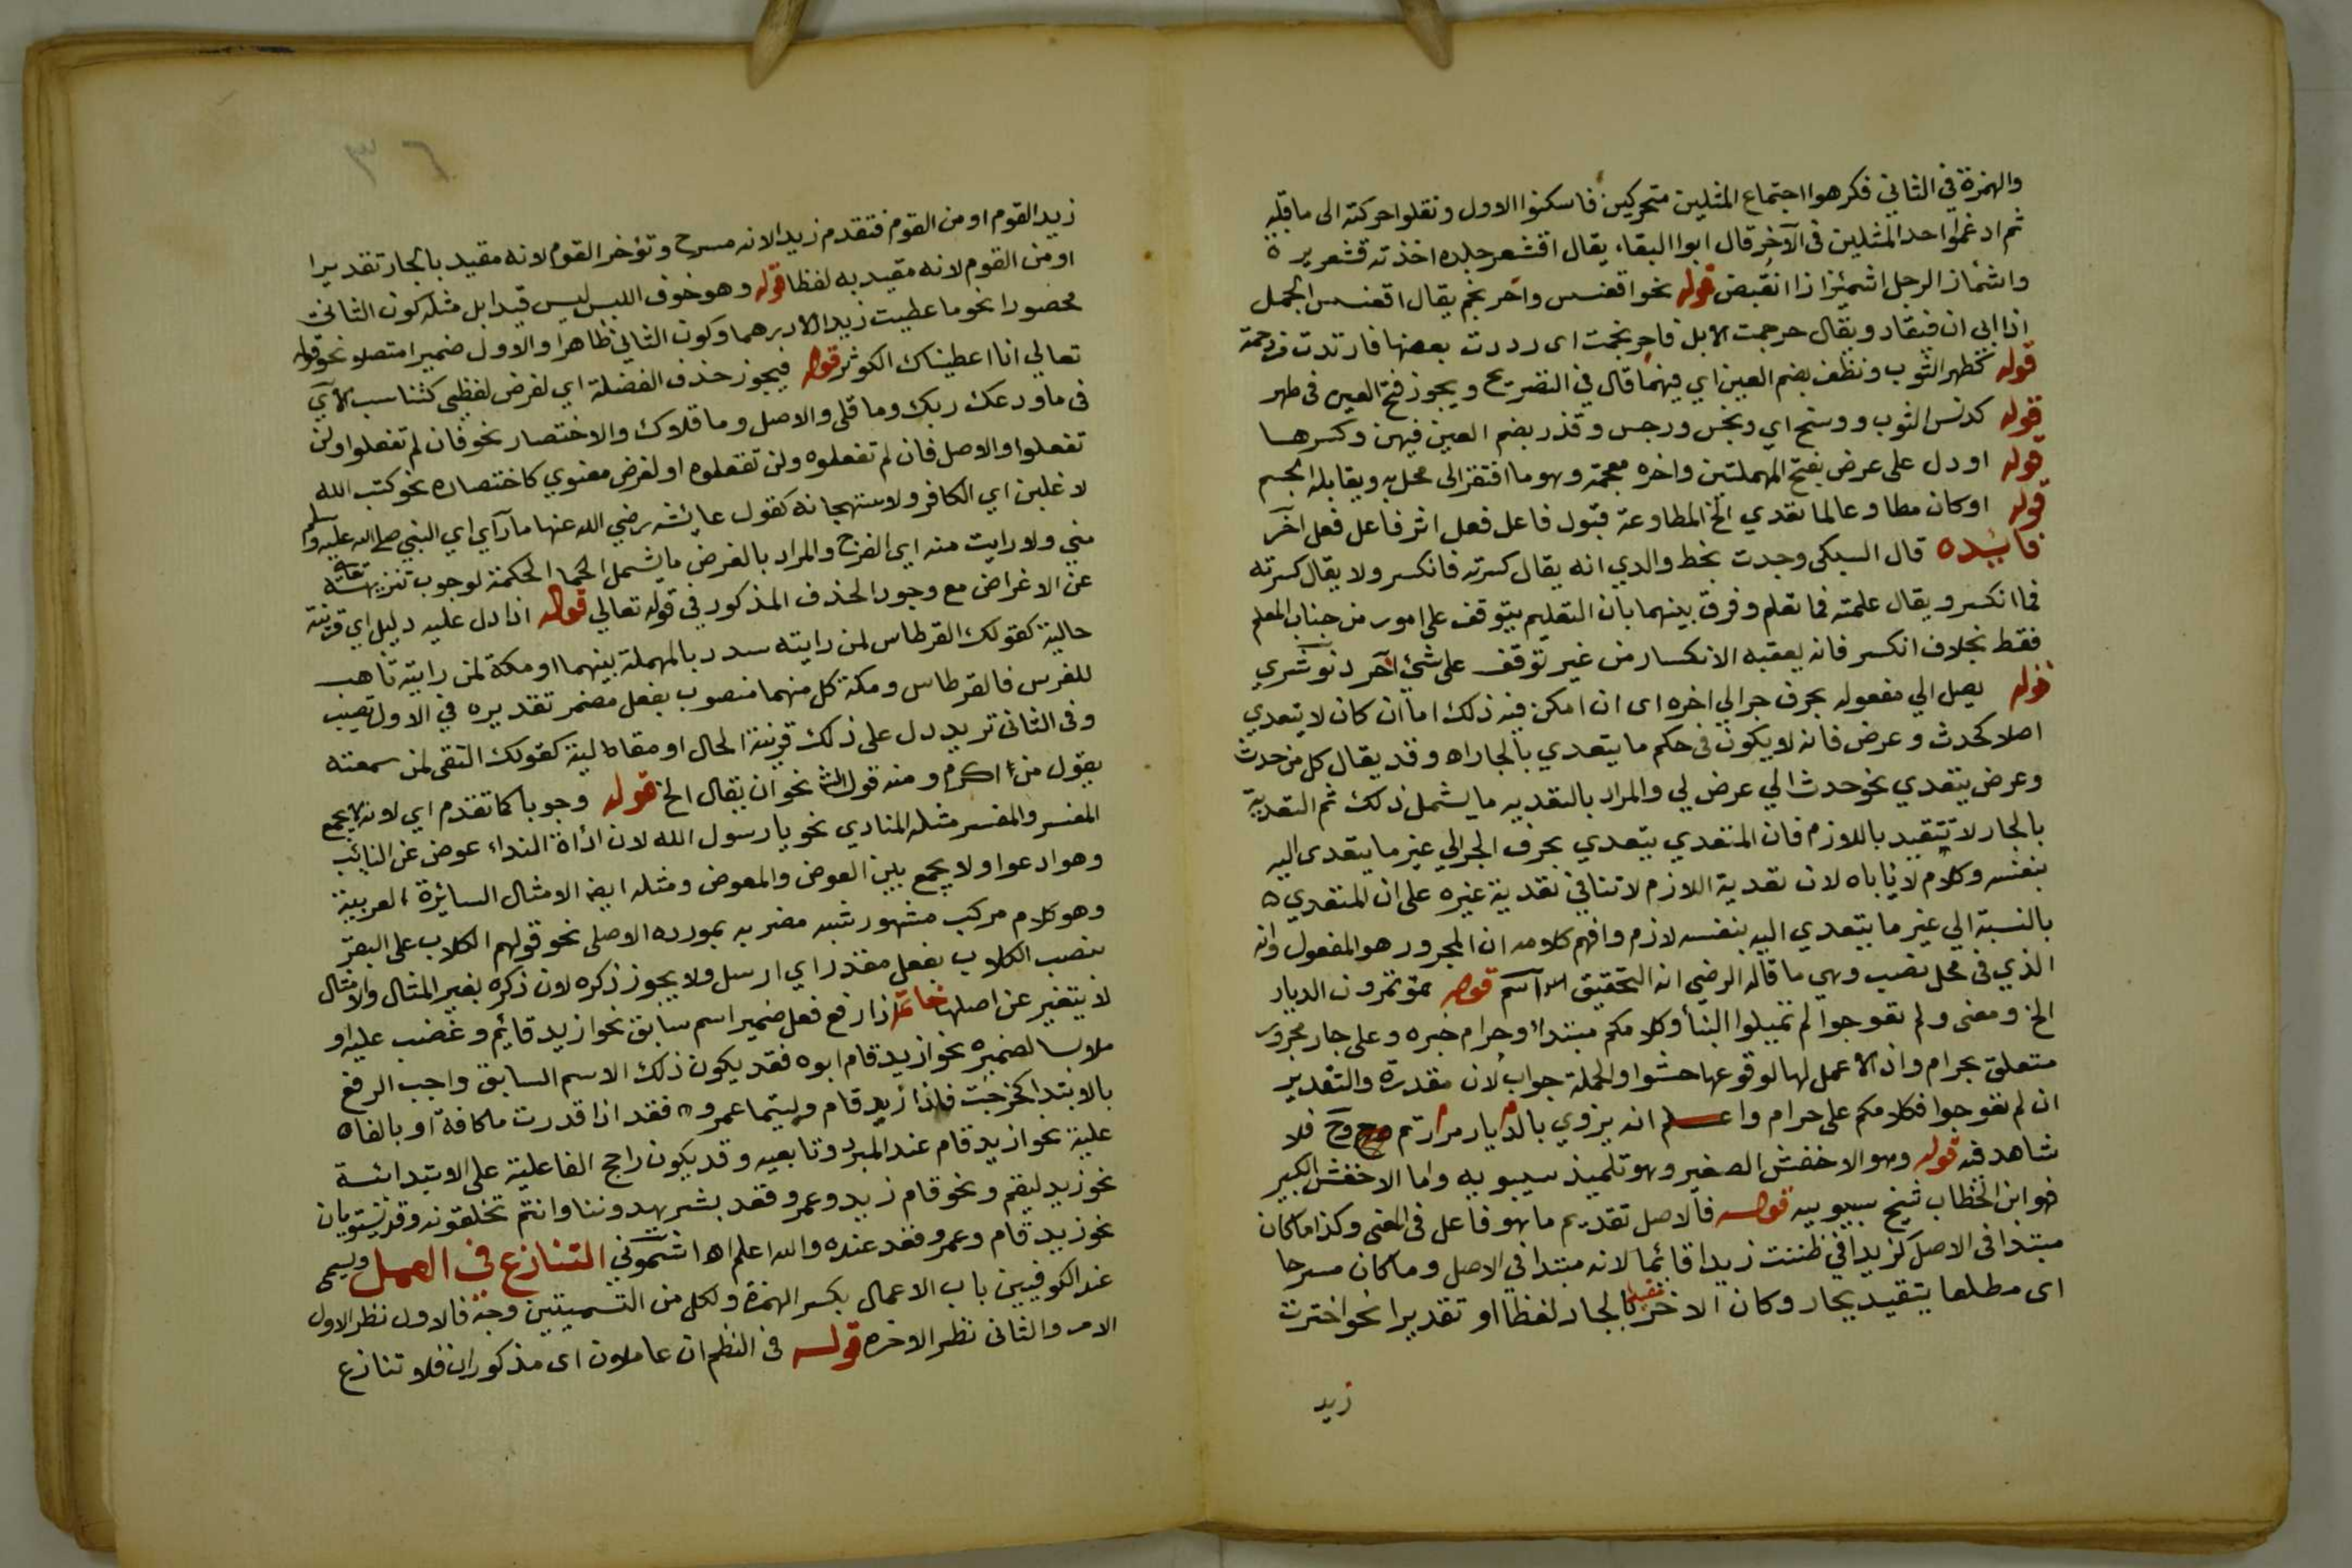 والهمزة في الثاني فكرهوا اجتماع المثلين متحركين فاسكنوا الاول ونقلوا حركته الى ما قبله
ثم ادغموا احد المثلين في الآخر قال ابوا البقاء يقال اقشعر جلده اخذته قشعريره
واشمأز الرجل اشمئزازا انقبض قوله نحو اقعنسس واحرنجم يقال اقعنسس الجمل
اذا ابى ان ينقاد ويقال حرجمت الابل فاحرنجمت اى رددت بعضها فارتدت مزدحمة
قوله كطهر الثوب ونظف بضم العين اي فيهما قال في التصريح ويجوز فتح العين في طهر
قوله كدنس الثوب ووسخ اي ونجس ورجس وقذر بضم العين فيهن وكسرها
قوله او دل على عرض بفتح المهملتين واخره معجمة وهو ما افتقر الى محل به ويقابله الجسم
قوله او كان مطاوعا لما تعدي الخ المطاوعة قبول فاعل فعل اثر فاعل فعل آخر
فايده قال السبكى وجدت بخط والدي انه يقال كسرته فانكسر ولا يقال كسرته
فما انكسر ويقال علمته فما تعلم وفرق بينهما بان التعليم يتوقف على امور من جناب المعلم
فقط بخلاف انكسر فانه يعقبه الانكسار من غير توقف على شئ آخر دنوشري
قوله يصل الي مفعوله بحرف جر الى اخره اى ان امكن فيه ذلك اما ان كان لا يتعدي
اصلا كحدث وعرض فانه لا يكون في حكم ما يتعدي بالجار اه وقد يقال كل من حدث
وعرض يتعدي نحو حدث الي عرض لي والمراد بالتعديه ما يشمل ذلك ثم التعدية
بالجار لا تتقيد باللازم فان المتعدي يتعدي بحرف الجر الي غير ما يتعدى اليه
بنفسه وكلام لا ياباه لان تعدية اللازم لا تنافي تعدية غيره على ان المتعدي
بالنسبة الي غير ما يتعدي اليه بنفسه لازم وافهم كلامه ان المجرور هو المفعول وانه
الذي في محل نصب وهي ما قاله الرضي انه التحقيق قوله تمرون الديار
الخ ومعنى ولم تعوجوا لم تميلوا البنا وكلامكم مبتدا وحرام خبره وعلى جار مجرور
متعلق بحرام واذ لا عمل لها لوقوعها حشوا والجملة جواب لان مقدرة والتقدير
ان لم تعوجوا فكلامكم على حرام واعلم انه يروي بالديار مررتم وح فلا
شاهد فيه قوله وهو الاخفش الصغير وهو تلميذ سيبويه واما الاخفش الكبير
فهو ابن الخطاب شيخ سيبويه قوله فالاصل تقديم ما هو فاعل في المعنى وكذا ما كان
مبتدا في الاصل كزيدا في ظننت زيدا قائما لانه مبتدا في الاصل وما كان مسرحا
اى مطلعا يتقيد بجار وكان الاخر تقيد بالجار لفظا او تقديرا نحو اخترت
زيد
٣٤
زيد القوم او من القوم فتقدم زيدا لانه مسرح وتؤخر القوم لانه مقيد بالجار تقديرا
او من القوم لانه مقيد به لفظا قوله وهو خوف اللبس ليس قيدا بل مثله كون الثاني
محصورا نحو ما اعطيت زيدا الا درهما وكون الثاني ظاهرا والاول ضميرا متصلا نحو قوله
تعالي انا اعطيناك الكوثر قوله فيجوز حذف الفضلة اي لغرض لفظي كتناسب الآي
في ما ودعك ربك وما قلى والاصل وما قلاوك والاختصار نحو فان لم تفعلوا ولن
تفعلوا والاصل فان لم تفعلوه ولن تفعلوه او لغرض معنوي كاختصاره نحو كتب الله
لاغلبن اي الكافر ولاستهجانه كقول عايشه رضي الله عنها ما رآي اي النبي صلى الله عليه وسلم
مني ولا رايت منه اي الفرج والمراد بالغرض ما يشمل الحكمة لوجوب تنزيهه تعالى
عن الاغراض مع وجود الحذف المذكور في قوله تعالي قوله اذا دل عليه دليل اي قرينة
حالية كقولك القرطاس لمن رايته سدد بالمهملة بينهما او مكة لمن رايته تاهب
للفرس فالقرطاس ومكة كل منهما منصوب بفعل مضمر تقديره في الاول تصيب
وفي الثاني تريد دل على ذلك قرينة الحال او مقالية كقولك التقى لمن سمعته
يقول من اكرم ومنه قول الش نحو ان يقال الخ قوله وجوبا كما تقدم اي لانه لا يجمع
المفسر والمفسر مثله المنادي نحو يا رسول الله لان اداة النداء عوض عن النايب
وهو ادعوا ولا يجمع بين العوض والمعوض ومثله ايض الامثال السائرة العربية
وهو كلام مركب مشهور شبه مضربه بمورده الاصلى نحو قولهم الكلاب على البقر
بنصب الكلاب بفعل مقدر اي ارسل ولا يجوز ذكره لان ذكره بغير المثال والامثال
لا يتغير عن اصلها خاتمة اذا رفع فعل ضمير اسم سابق نحو ازيد قايم وغضب عليه او
ملابسا لضميره نحو ازيد قام ابوه فقد يكون ذلك الاسم السابق واجب الرفع
بالابتدا كخرجت فاذا زيد قام وليتما عمرو فقد اذا قدرت ما كافة او بالفا
علية نحو ازيد قام عند المبرد وتابعيه وقد يكون راجح الفاعلية على الابتدائية
نحو زيد ليقم ونحو قام زيد وعمرو فقد بشر يهدوننا وانتم تخلقونه وقد يستويان
نحو زيد قام وعمرو فقد عنده والله اعلم اه اشموني التنازع في العمل ويسمى
عند الكوفيين باب الاعمال بكسر الهمزة ولكل من التسميتين وجه فالاول نظر الاول
الامر والثاني نظر الاخره قوله في النظم ان عاملان اى مذكوران فلا تنازع